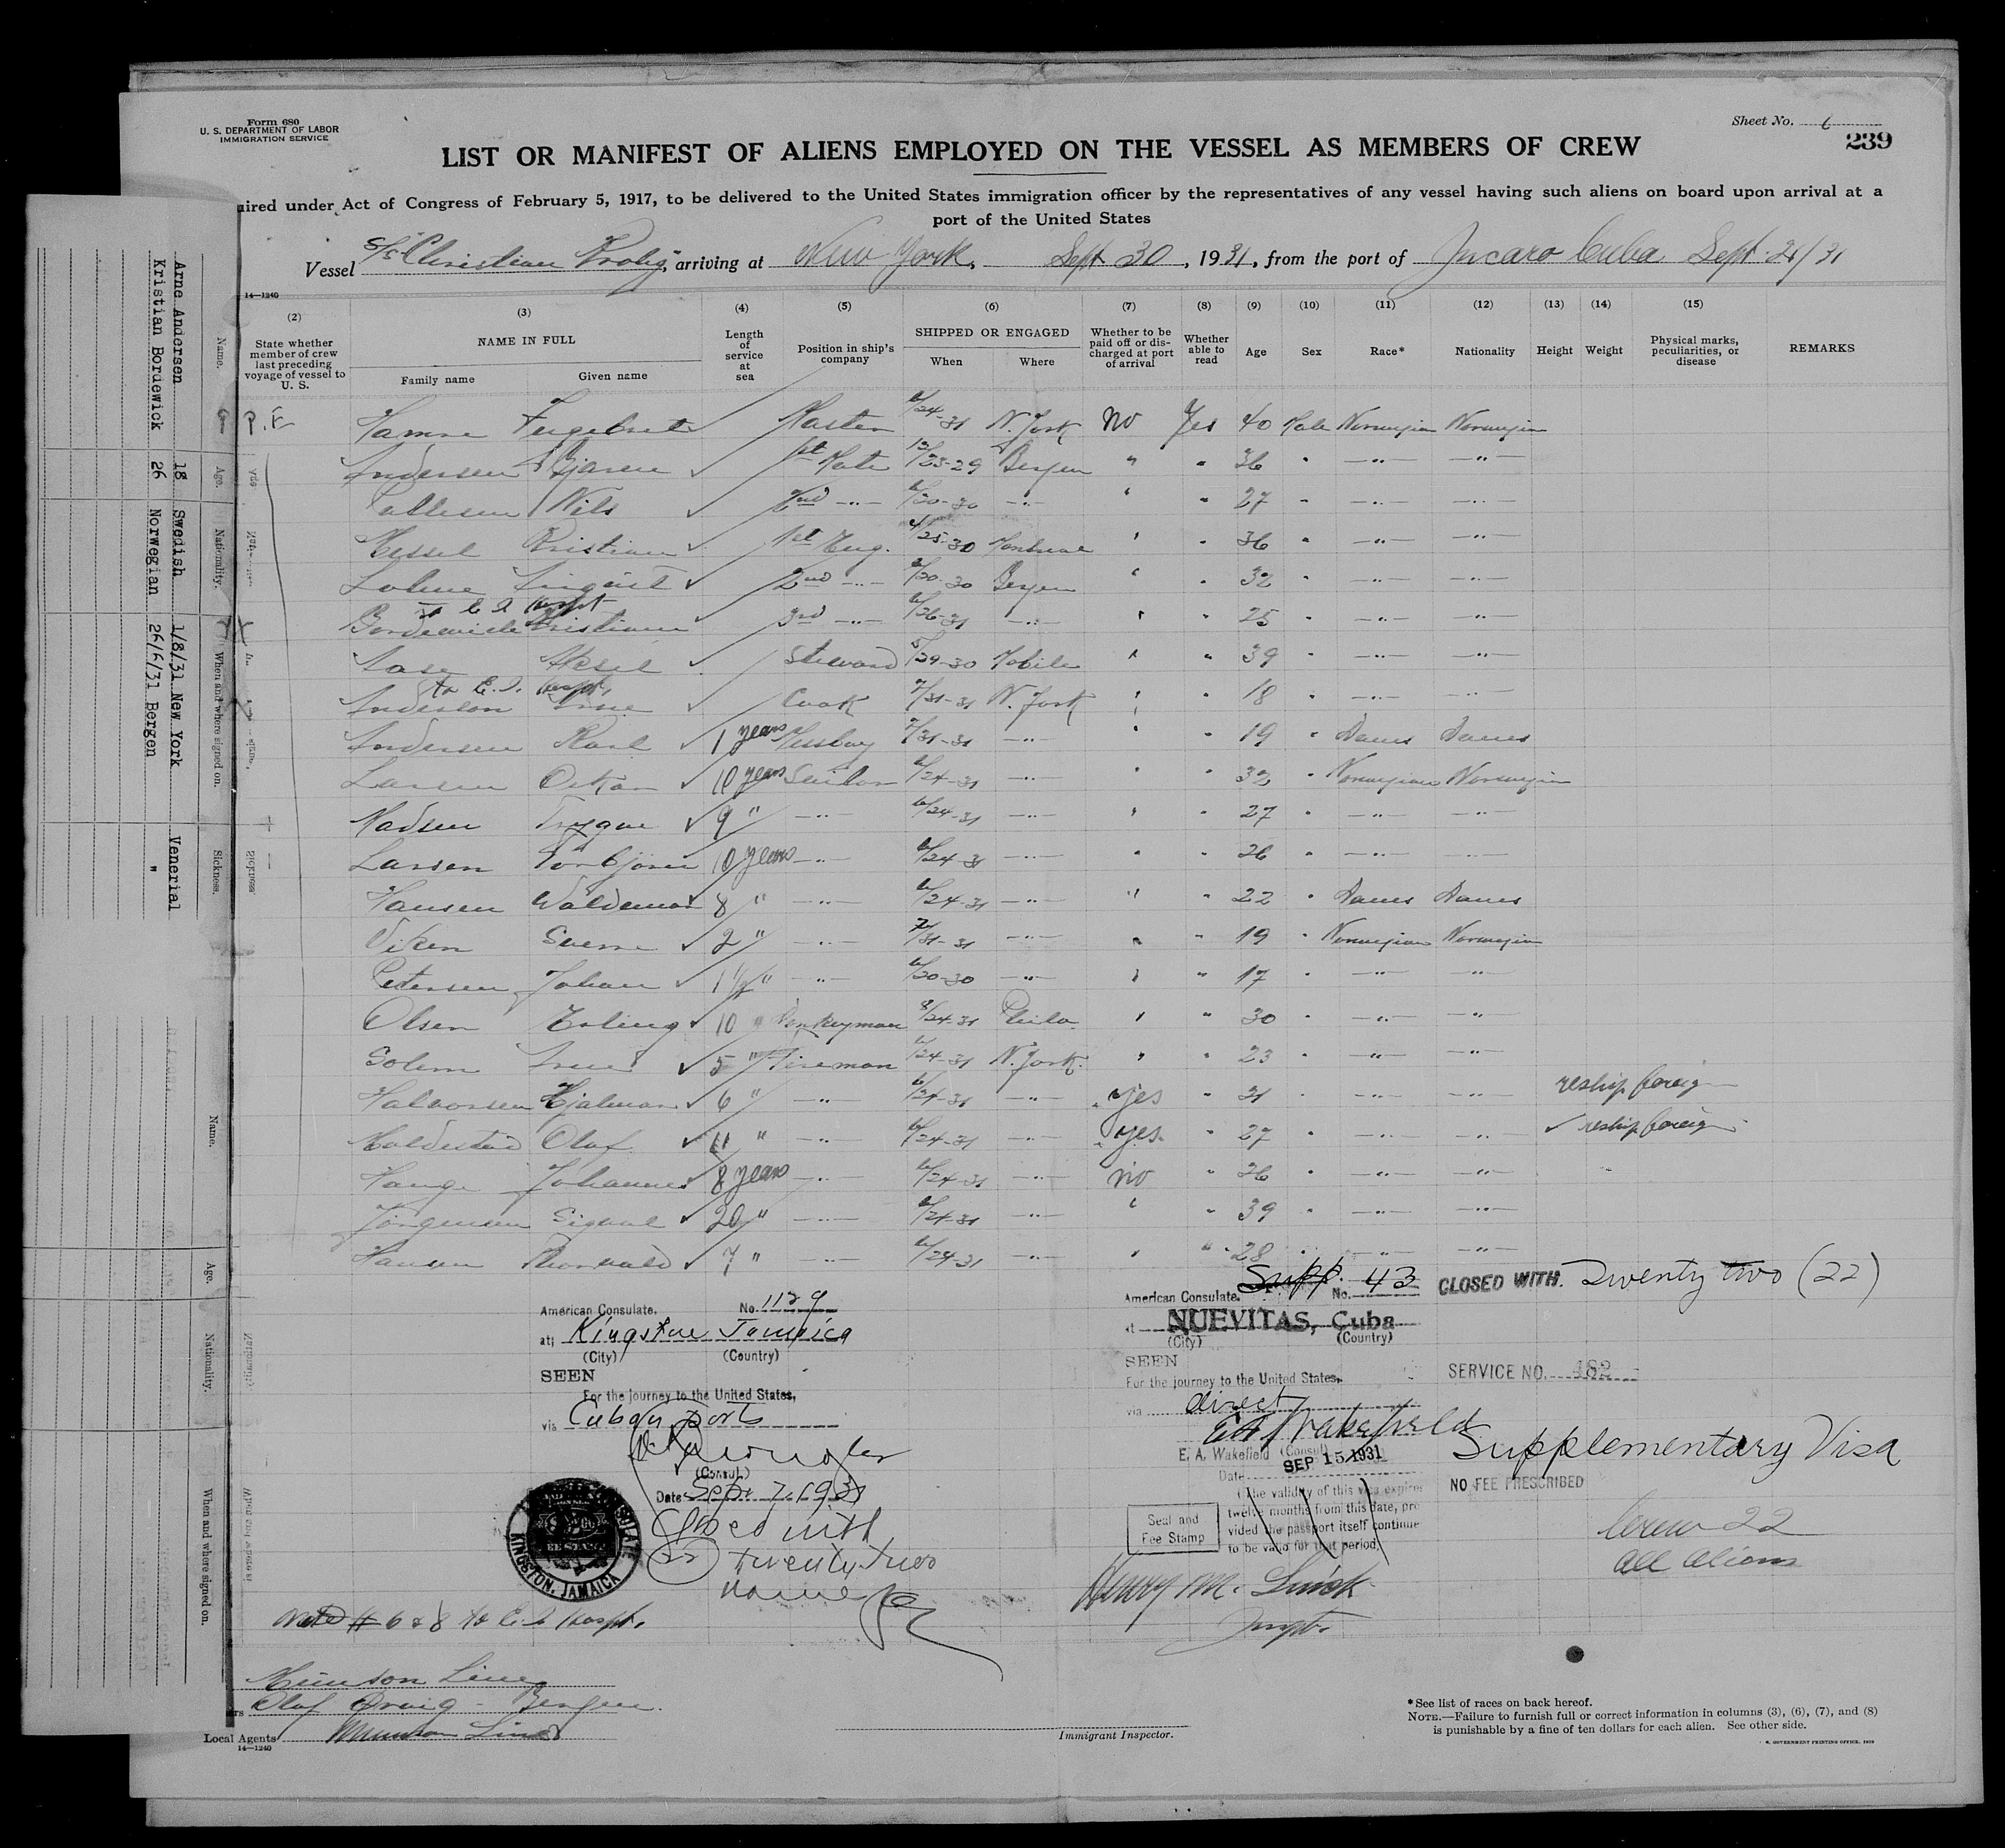 Form 680
U. S. DEPARTMENT OF LABOR
IMMIGRATION SERVICE
Sheet No.
239
LIST OR MANIFEST OF ALIENS EMPLOYED ON THE VESSEL AS MEMBERS OF CREW
uired under Act of Congress of February 5, 1917, to be delivered to the United States immigration officer by the representatives of any vessel having such aliens on board upon arrival at a
port of the United States
Vessel S/S Christian Krohg, arriving at New York, Sept 30, 1931, from the port of Jucaro Cuba Sept
14—1240
(2) (3) (4) (5) (6) (7) (8) (9) (10) (11) (12) (13) (14) (15)
State whether member of crew last preceding voyage of vessel to U. S.
NAME IN FULL
Family name Given name
Length of service at sea
Position in ship's company
SHIPPED OR ENGAGED
When Where
Whether to be paid off or discharged at port of arrival
Whether able to read
Age Sex Race* Nationality Height Weight
Physical marks, peculiarities, or disease
REMARKS
P.E Hamre Master 6/24-31 N. York No Yes 40 Male Norwegian Norwegian
Andersen Bjarne 1st Mate 12/23-29 Bergen " " 36 " —"— —"—
Nils 2nd —"— 6/20-30 —"— " " 27 " —"— —"—
Messel Kristian 1st Eng. 4/25-30 Montreal " " 36 " —"— —"—
2nd —"— Bergen " " 32 " —"— —"—
to E I Hospt
Bordewick Kristian 3rd —"— 6/26-31 —"— " " 25 " —"— —"—
Aksel Steward 5/29-30 Mobile " " 39 " —"— —"—
to E. I. Hospt,
Anderson Arne Cook 7/31-31 N. York " " 18 " —"— —"—
Andersen Karl 1 years Messboy 7/31-31 —"— " " 19 " Danes Danes
Larsen Oskar 10 years Sailor 6/24-31 —"— " " 32 " Norwegian Norwegian
Madsen Trygve 9 " —"— 6/24-31 —"— " " 27 " —"— —"—
Larsen Torbjörn 10 years —"— 6/24-31 —"— " " 26 " —"— —"—
Hansen Waldemar 8 " —"— 6/24-31 —"— " " 22 " Danes Danes
Viken Sverre 2 " —"— 7/31-31 —"— " " 19 " Norwegian Norwegian
Petersen Johan 1 1/2 " —"— 6/20-30 —"— " " 17 " —"— —"—
Olsen Erling 10 " Donkeyman 8/24-31 Phila. " " 30 " —"— —"—
Solem Arne 5 " Fireman 6/24-31 N. York. " " 23 " —"— —"—
Halvorsen Hjalmar 6 " —"— 6/24-31 —"— yes " 31 " —"— —"— reship foreign
Olaf 11 " —"— 6/24-31 —"— yes. " 27 " —"— —"— reship foreign
Hauge Johannes 8 years —"— 6/24-31 —"— no " 26 " —"— —"—
Jörgensen Sigval 20 " —"— 6/24-31 —"— " " 39 " —"— —"—
Hansen Thorvald 7 " —"— 6/24-31 —"— " " 28 " —"— —"—
American Consulate. No. 1129
at; Kingston Jamaica
(City) (Country)
SEEN
For the journey to the United States,
via Cuban Ports
(Consul.)
Date Sept. 7, 1931
Closed with
(22) twenty two
names
KINGSTON, JAMAICA
Note # 6 & 8 to E. I. Hospt.
Supp. 43
American Consulate. No.
at NUEVITAS, Cuba
(City) (Country)
SEEN
For the journey to the United States,
via direct
E. A. Wakefield (Consul)
Date SEP 15 1931
(The validity of this visa expires
twelve months from this date, pro
vided the passport itself continue
to be valid for that period)
Seal and
Fee Stamp
Henry M.
Inspt.
CLOSED WITH. Twenty two (22)
SERVICE NO. 482
Supplementary Visa
NO FEE PRESCRIBED
Crew 22
All Aliens
Munson Line
Olaf Bergen.
Local Agents Munson Line
14—1240
Immigrant Inspector.
*See list of races on back hereof.
NOTE.—Failure to furnish full or correct information in columns (3), (6), (7), and (8)
is punishable by a fine of ten dollars for each alien. See other side.
Name. Age. Nationality. When and where signed on. Sickness.
Arne Andersen 18 Swedish 1/8/31 New York Venerial
Kristian Bordewick 26 Norwegian 26/6/31 Bergen "
Name. Age. Nationality. When and where signed on.